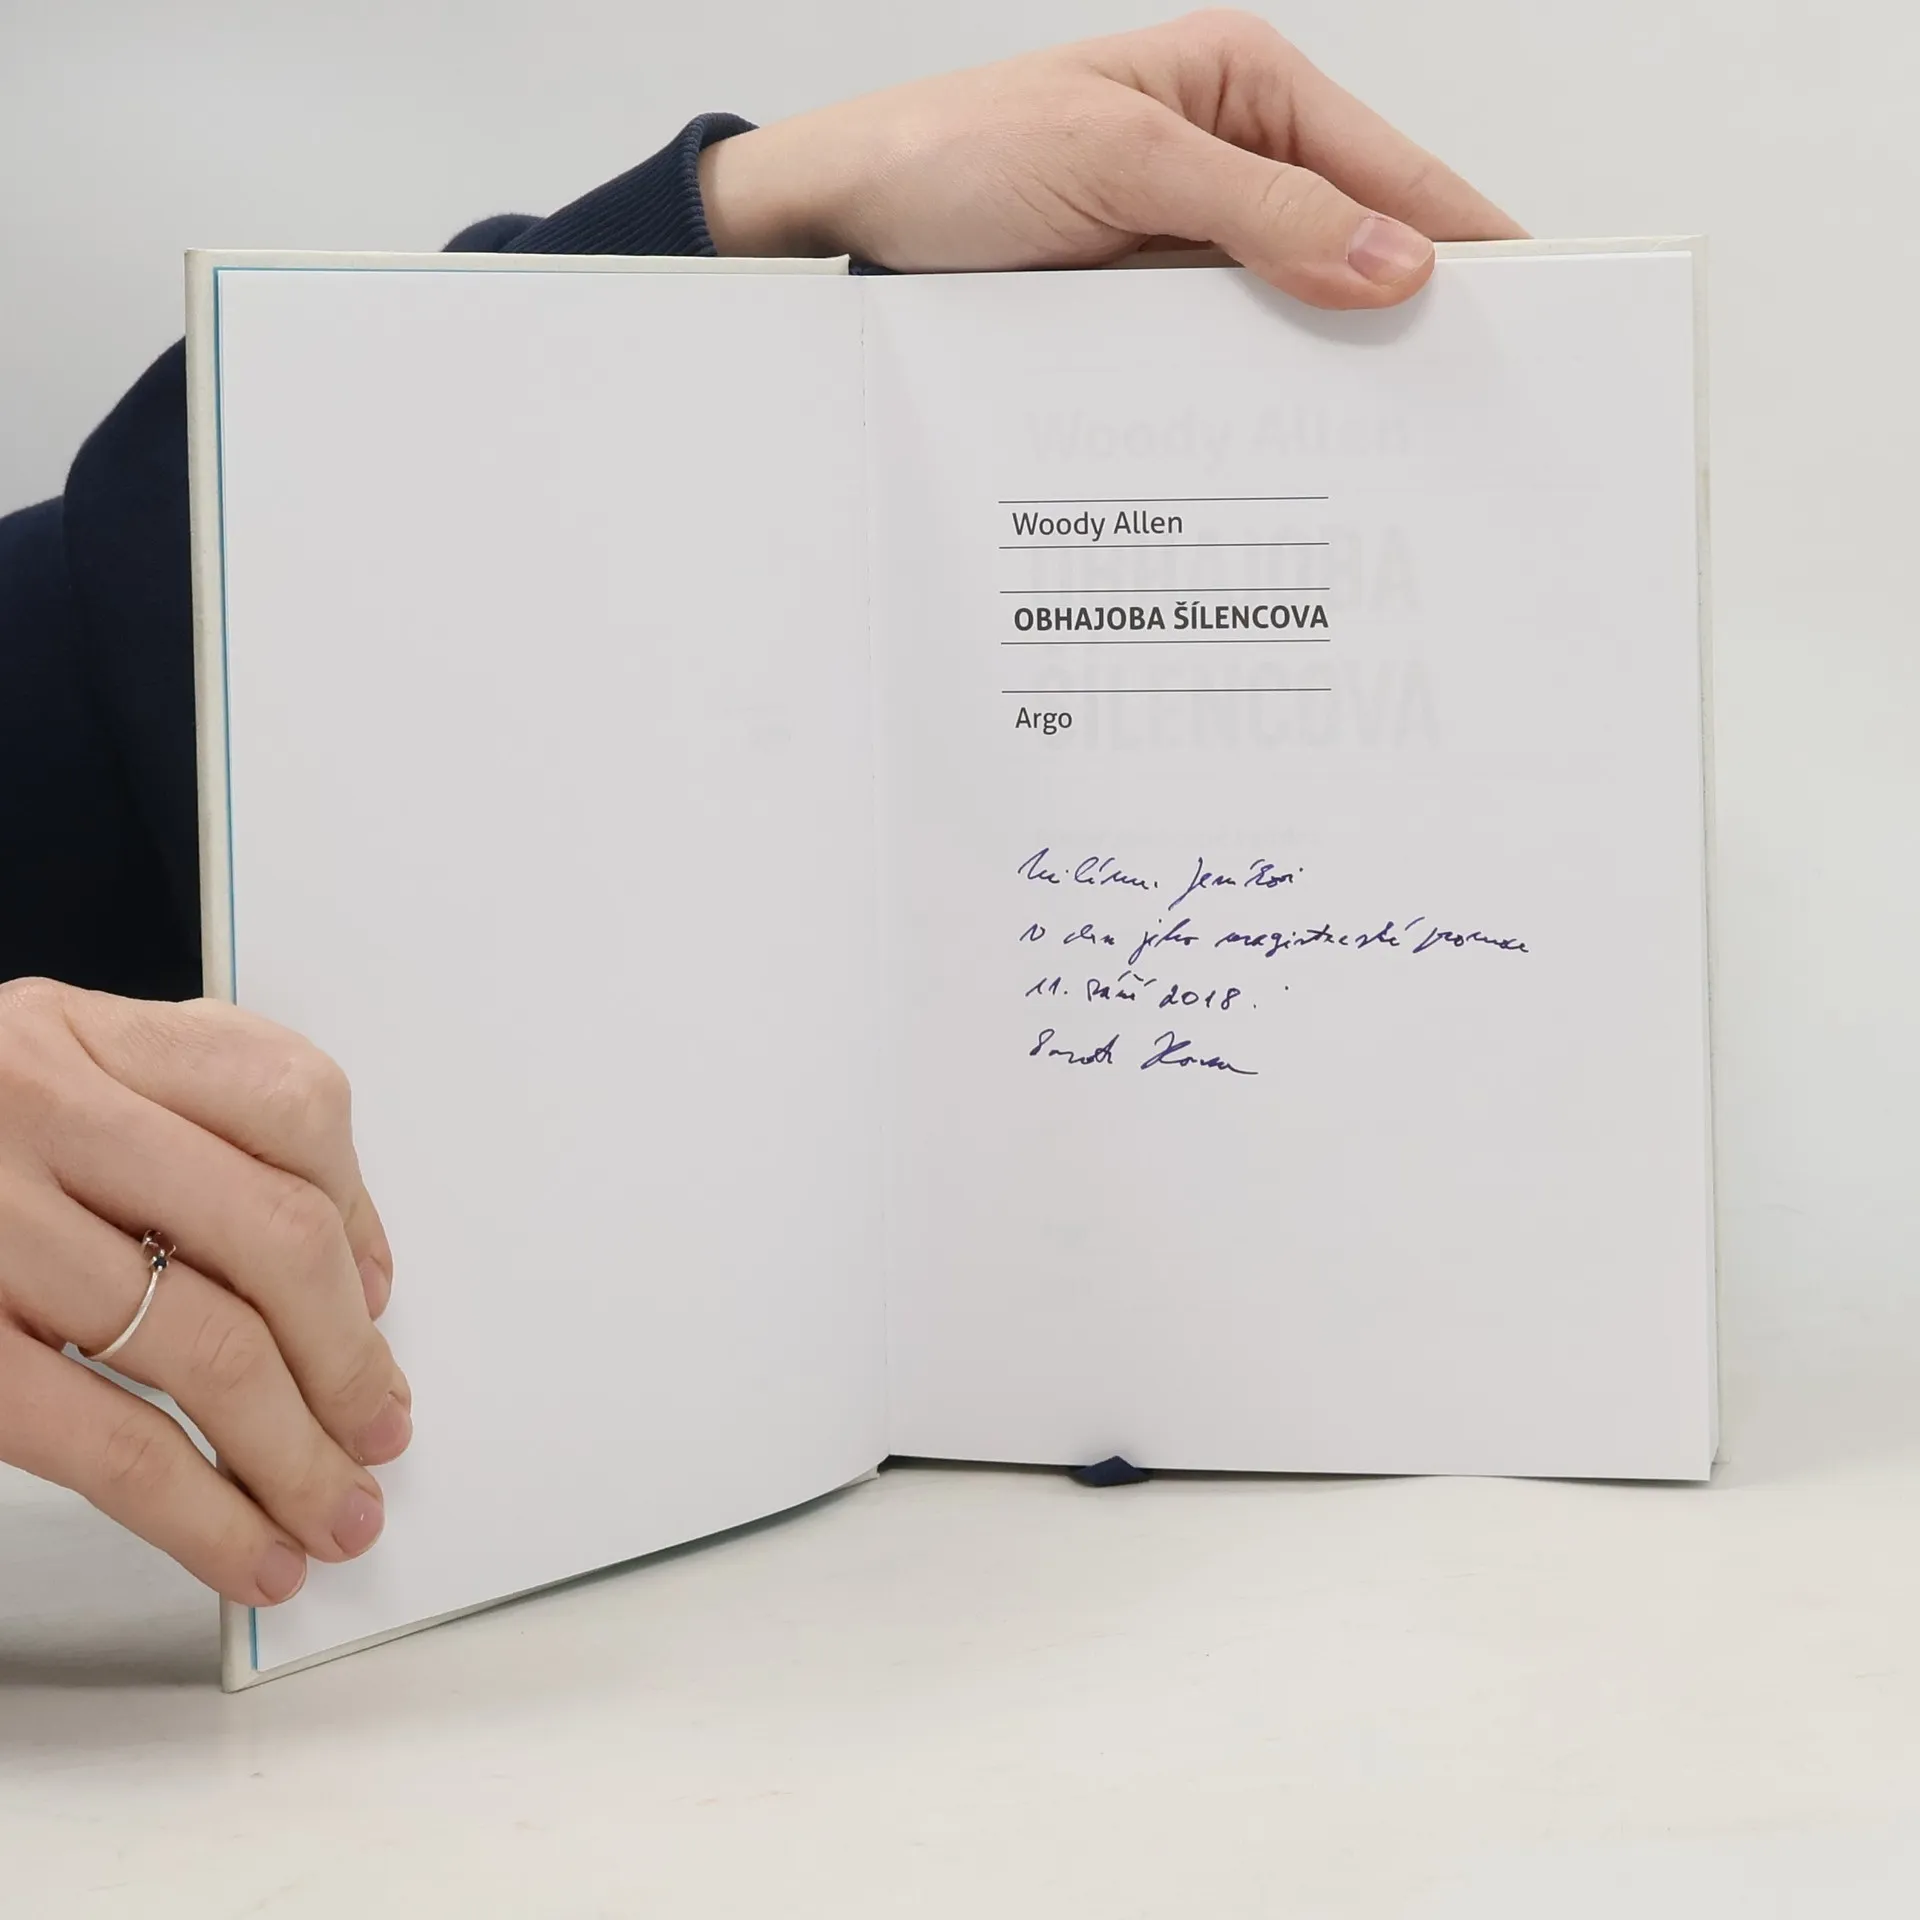 Woody Allen
OBHAJOBA ŠÍLENCOVA
Argo
Milému Jeníkovi
v den jeho magisterské promoce
11. září 2018.